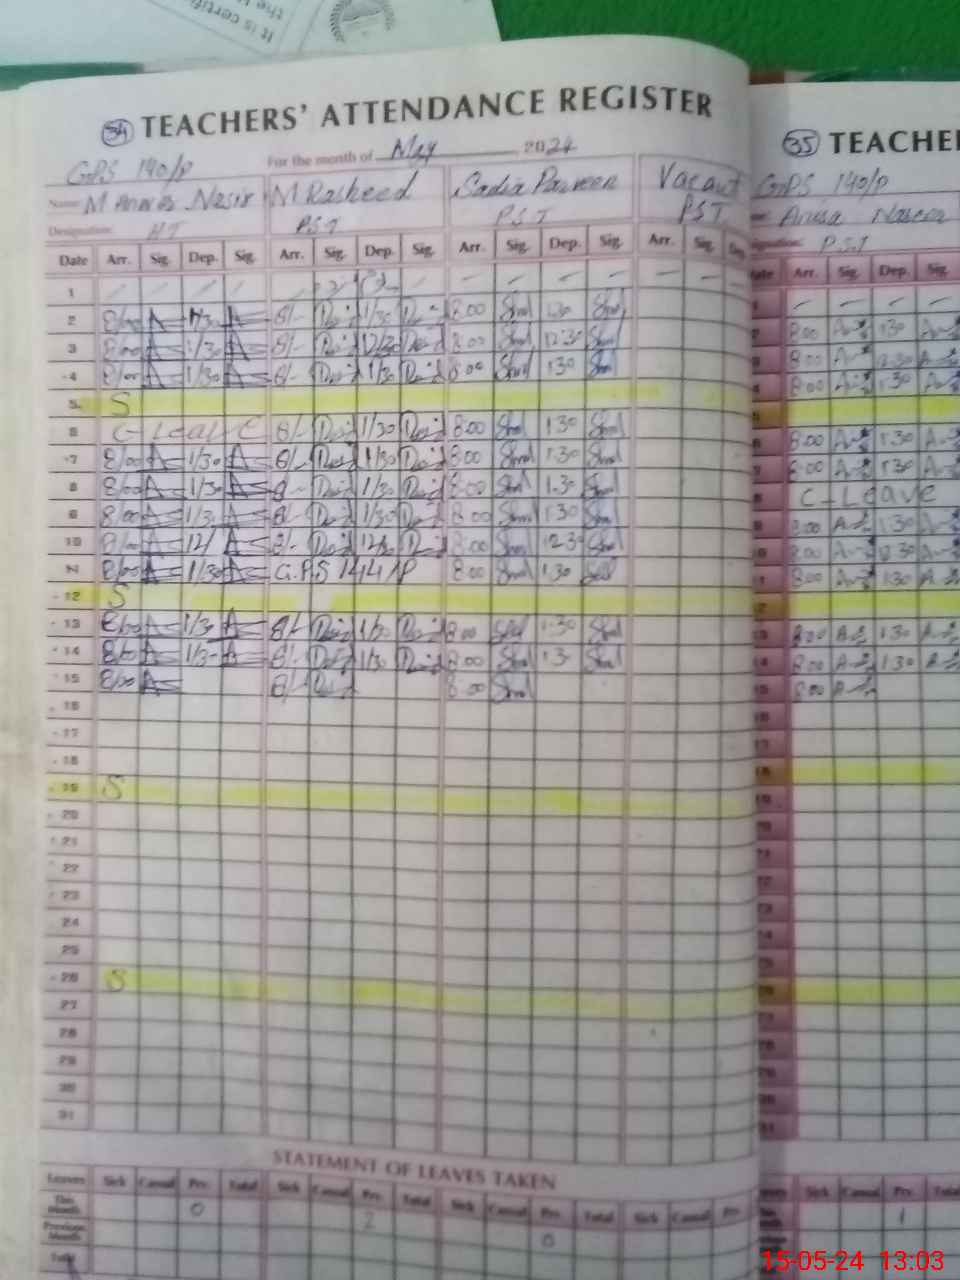 It is certifi
the
34 TEACHERS' ATTENDANCE REGISTER
GPS 140/P For the month of May 2024
Name M Anwar Nasir M Rasheed Sadia Parveen Vacant
Designation: HT P.S.T P.S.T P.S.T
Date Arr. Sig. Dep. Sig. Arr. Sig. Dep. Sig. Arr. Sig. Dep. Sig. Arr. Sig. Dep.
1 - - - - - - - - - -
2 8/00 1/30 8/- 1/30 8.00 1.30
3 8/00 1/30 8/- 12/30 8.00 12:30
4 8/00 1/30 8/- 1/30 8.00 1.30
5 S
6 C-Leave 8/- 1/30 8.00 1.30
7 8/00 1/30 8/- 1/30 8.00 1.30
8 8/00 1/30 8/- 1/30 8.00 1.30
9 8/00 1/30 8/- 1/30 8.00 1.30
10 8/00 12/ 8/- 12/30 8.00 12.30
11 8/00 1/30 G.P.S 144/P 8.00 1.30
12 S
13 8/00 1/30 8/- 1/30 8.00 1.30
14 8/00 1/30 8/- 1/30 8.00 1.30
15 8/00 8/- 8.00
16
17
18
19 S
20
21
22
23
24
25
26 S
27
28
29
30
31
STATEMENT OF LEAVES TAKEN
Leaves Sick Casual Prv. Total Sick Casual Prv. Total Sick Casual Prv. Total Sick Casual Prv.
This Month 0 2 0
Previous Month
Total
35 TEACHE
GPS 140/P
Anisa Naseem
P.S.T
Arr. Sig. Dep. Sig.
- - - -
8.00 1.30
8.00 12.30
8.00 1.30
8.00 1.30
8.00 1.30
C-Leave
8.00 1.30
8.00 12.30
8.00 1.30
8.00 1.30
8.00 1.30
8.00
Sick Casual Prv. Total
1
15-05-24 13:03